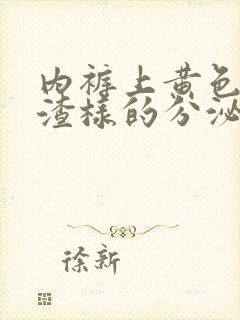 内裤上黄色
渣样的分泌
徐新